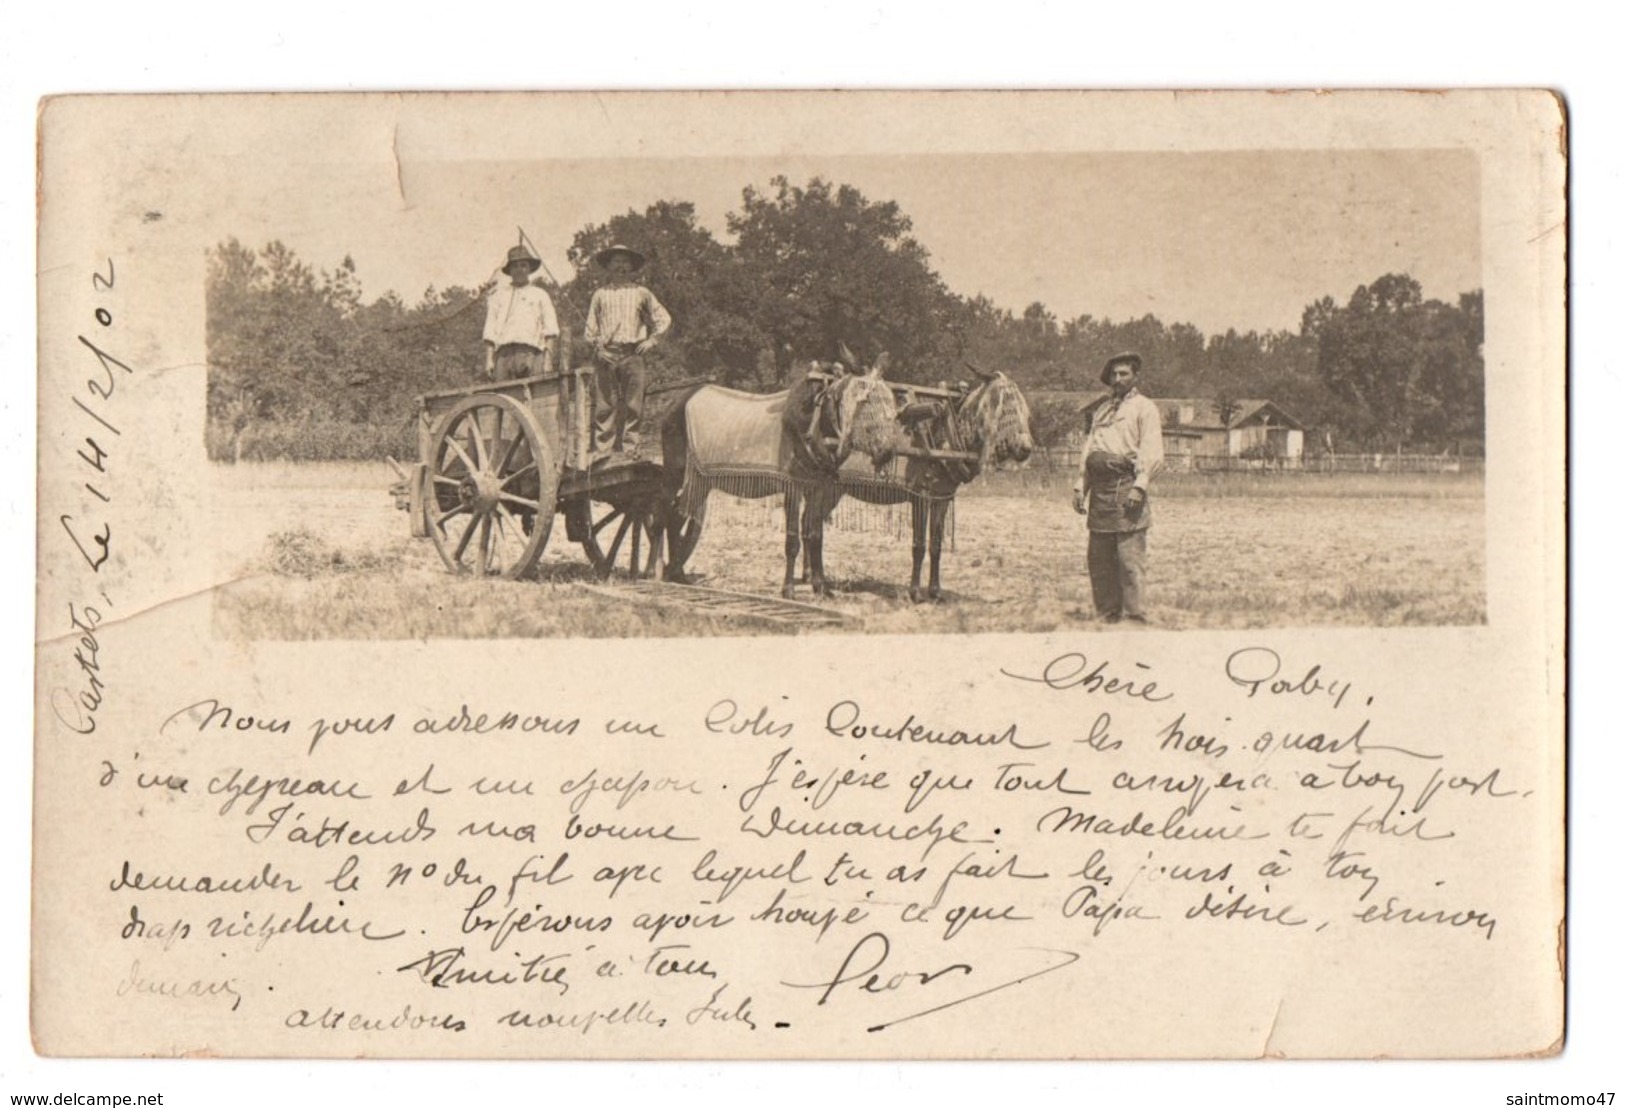 Castets, Le 14/2/02
Chère Gaby,
Nous vous adressons un Colis Contenant les trois quart
d'un chevreau et un chapon. J'espère que tout arrivera à bon port.
J'attends ma bonne Dimanche. Madeleine te fait
demander le n° du fil avec lequel tu as fait les jours à ton
drap richelieu. Espérons avoir trouvé ce que Papa désire, écrirons
demain.
Amitié à tous
attendons nouvelles Jules -
www.delcampe.net
saintmomo47